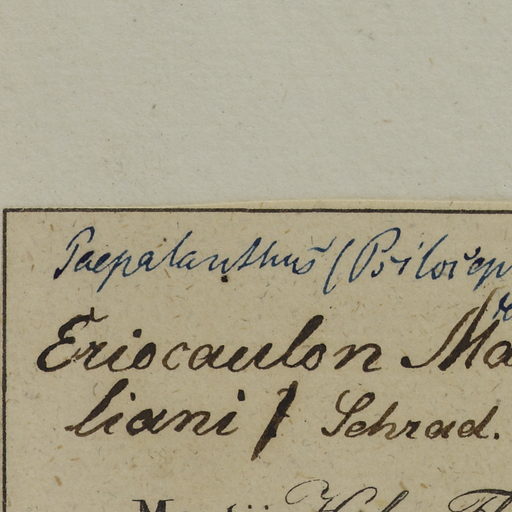 Paepalanthus (Psilocep
Eriocaulon Ma
liani Schrad.
Martii